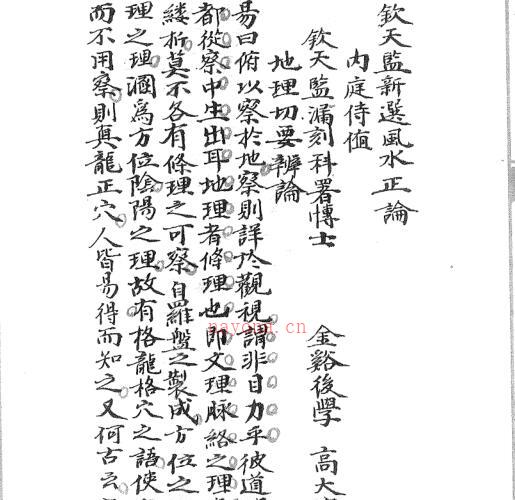 欽天監新選風水正論
內庭侍值
欽天監漏刻科署博士
金谿後學 高大
地理切要辨論
易曰俯以察於地察則詳於觀視謂非目力乎彼道
都從察中生出耳地理者條理也即文理脉絡之理
縷析莫不各有條理之可察自羅盤之製成方位之
理之理溷為方位陰陽之理故有格龍格穴之語使
而不用察則真龍正穴人皆易得而知之又何古云
nayona.cn